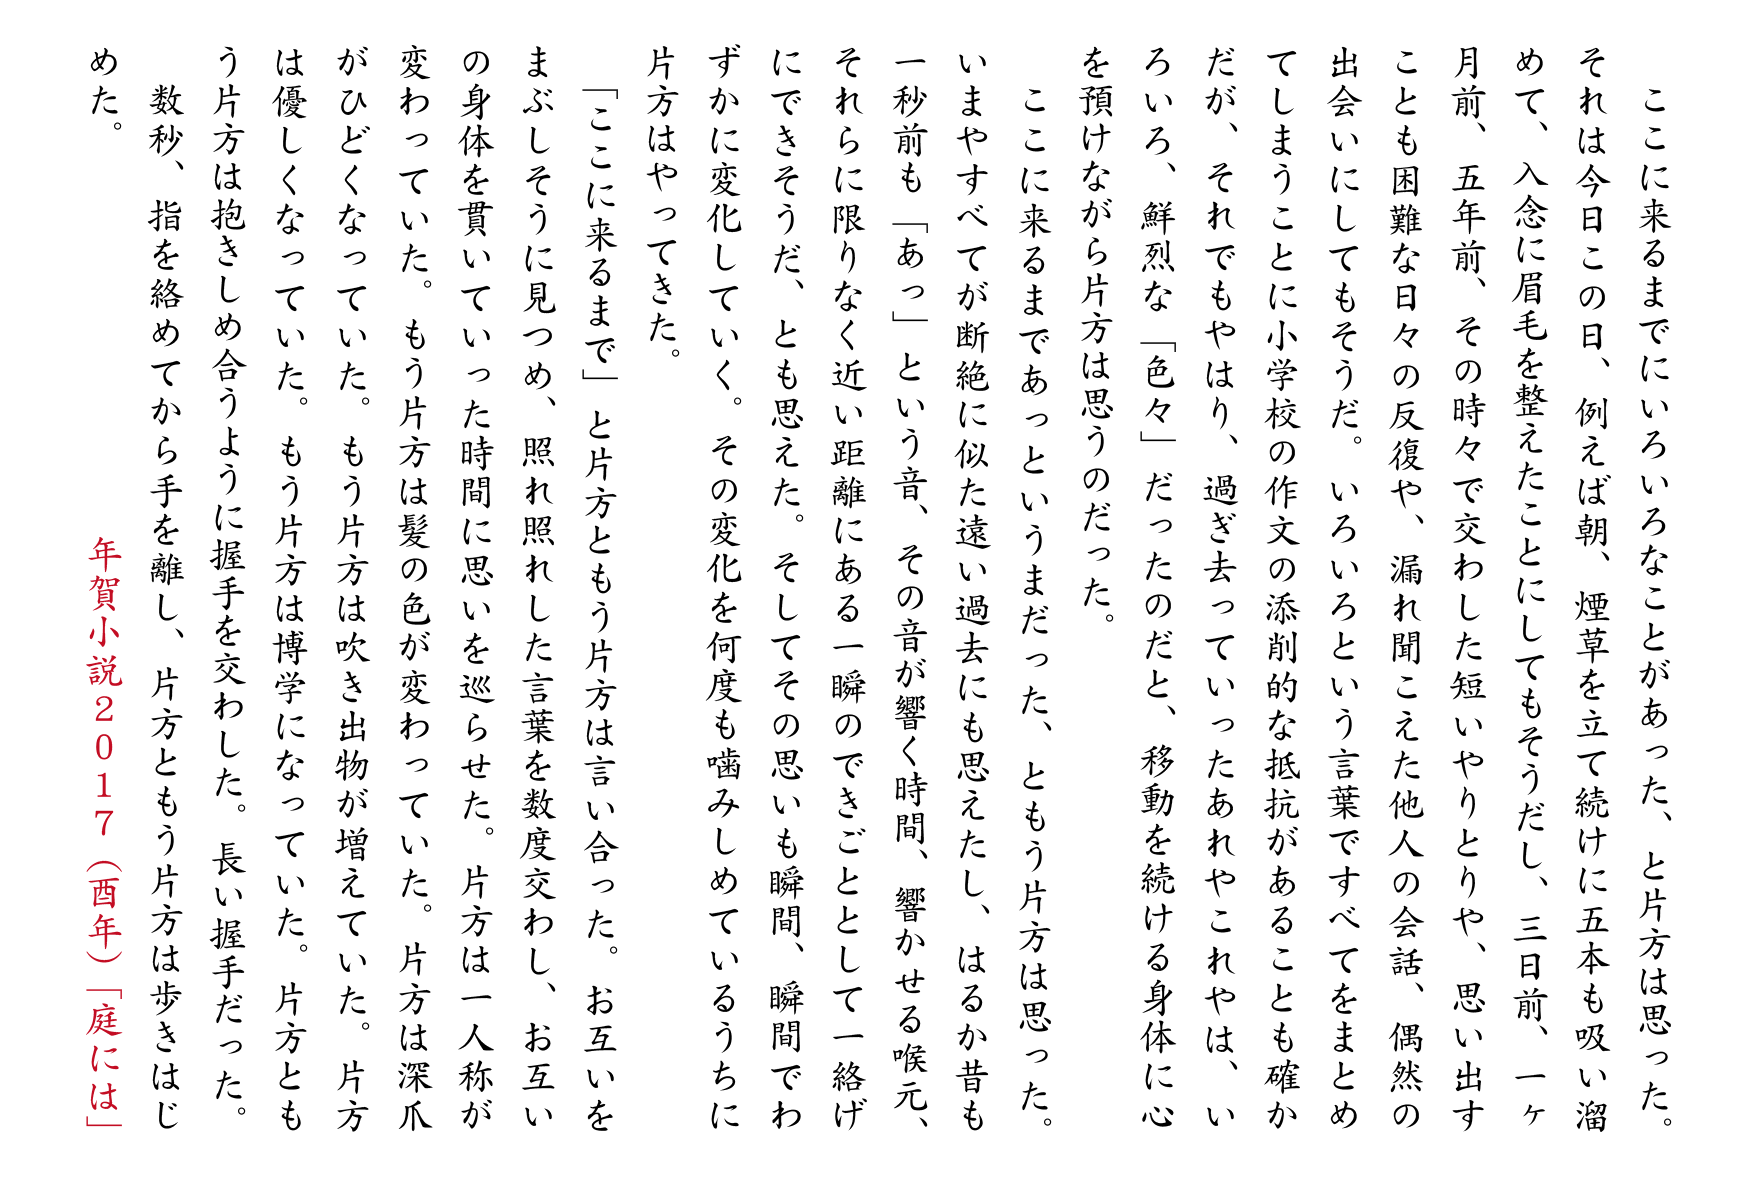 ここに来るまでにいろいろなことがあった、と片方は思った。
それは今日この日、例えば朝、煙草を立て続けに五本も吸い溜
めて、入念に眉毛を整えたことにしてもそうだし、三日前、一ヶ
月前、五年前、その時々で交わした短いやりとりや、思い出す
ことも困難な日々の反復や、漏れ聞こえた他人の会話、偶然の
出会いにしてもそうだ。いろいろという言葉ですべてをまとめ
てしまうことに小学校の作文の添削的な抵抗があることも確か
だが、それでもやはり、過ぎ去っていったあれやこれやは、い
ろいろ、鮮烈な「色々」だったのだと、移動を続ける身体に心
を預けながら片方は思うのだった。
ここに来るまであっというまだった、ともう片方は思った。
いまやすべてが断絶に似た遠い過去にも思えたし、はるか昔も
一秒前も「あっ」という音、その音が響く時間、響かせる喉元、
それらに限りなく近い距離にある一瞬のできごととして一絡げ
にできそうだ、とも思えた。そしてその思いも瞬間、瞬間でわ
ずかに変化していく。その変化を何度も噛みしめているうちに
片方はやってきた。
「ここに来るまで」と片方ともう片方は言い合った。お互いを
まぶしそうに見つめ、照れ照れした言葉を数度交わし、お互い
の身体を貫いていった時間に思いを巡らせた。片方は一人称が
変わっていた。もう片方は髪の色が変わっていた。片方は深爪
がひどくなっていた。もう片方は吹き出物が増えていた。片方
は優しくなっていた。もう片方は博学になっていた。片方とも
う片方は抱きしめ合うように握手を交わした。長い握手だった。
数秒、指を絡めてから手を離し、片方ともう片方は歩きはじ
めた。
年賀小説2017（酉年）「庭には」